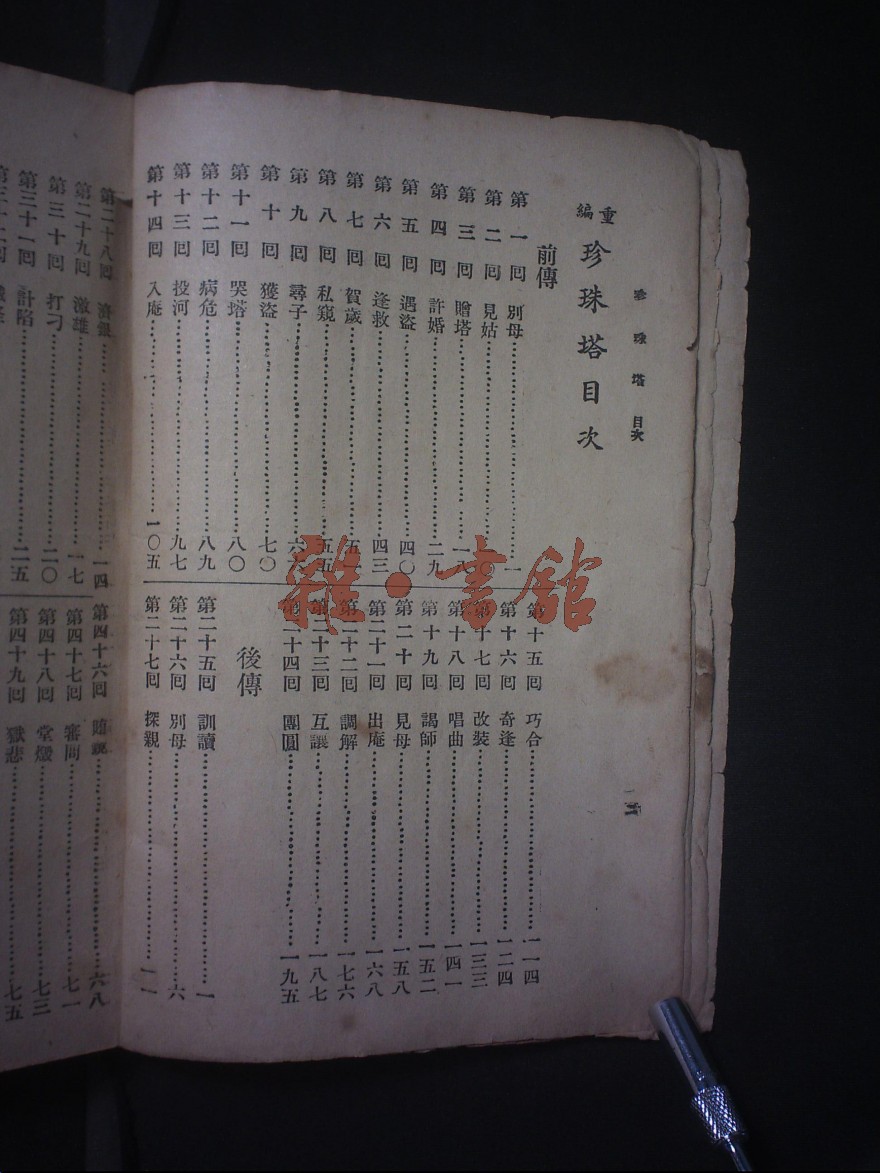 珍珠塔 目次
重編 珍珠塔目次
前傳
第一回 別母 一
第二回 見姑
第三回 贈塔 一八
第四回 許婚 二九
第五回 遇盜 四〇
第六回 逢救 四三
第七回 賀歲
第八回 私窺 五五
第九回 尋子
第十回 獲盜 七〇
第十一回 哭塔 八〇
第十二回 病危 八九
第十三回 投河 九七
第十四回 入庵 一〇五
第十五回 巧合 一一四
第十六回 奇逢 一二四
第十七回 改裝 一三三
第十八回 唱曲 一四一
第十九回 謁師 一五二
第二十回 見母 一五八
第二十一回 出庵 一六八
第二十二回 調解 一七六
第二十三回 互讓 一八七
第二十四回 團圓 一九五
後傳
第二十五回 訓讀 一
第二十六回 別母 六
第二十七回 探親 一一
第二十八回 濟銀 一四
第二十九回 激雄 一七
第三十回 打刁 二〇
第三十一回 計陷 二五
第四十六回 六八
第四十七回 審問 七一
第四十八回 堂燬 七三
第四十九回 獄悲 七五
雜·書舘